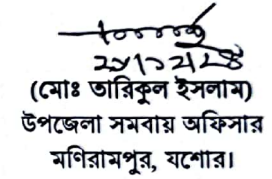 (মোঃ তারিকুল ইসলাম)
উপজেলা সমবায় অফিসার
মণিরামপুর, যশোর।